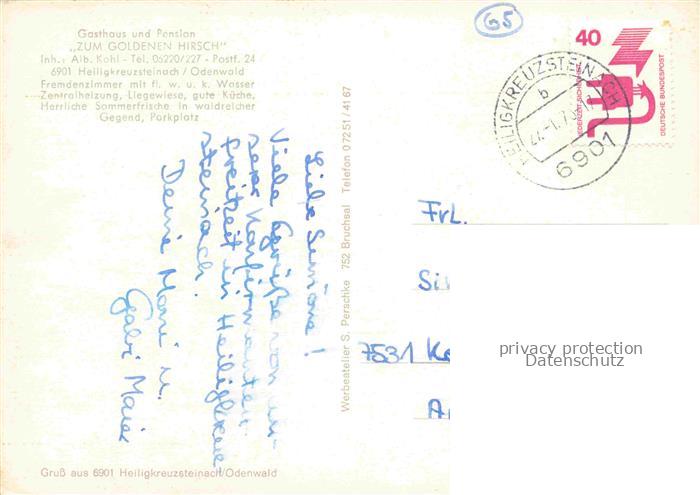 Gasthaus und Pension
„ZUM GOLDENEN HIRSCH"
Inh.: Alb. Kohl - Tel. 06220/227 - Postf. 24
6901 Heiligkreuzsteinach / Odenwald
Fremdenzimmer mit fl. w. u. k. Wasser
Zentralheizung, Liegewiese, gute Küche,
Herrliche Sommerfrische in waldreicher
Gegend, Parkplatz
G5
40
JEDERZEIT SICHERHEIT
DEUTSCHE BUNDESPOST
HEILIGKREUZSTEINACH
b
6901
Liebe Simone!
Viele Grüße von un-
serer Konfirmanten-
freizeit in Heiligkreuz-
steinach.
Deine Moni u.
Gabi Maier
Werbeatelier S. Perschke 752 Bruchsal Telefon 07251/4167
Frl.
Si
7531 Ke
privacy protection
Datenschutz
Gruß aus 6901 Heiligkreuzsteinach/Odenwald